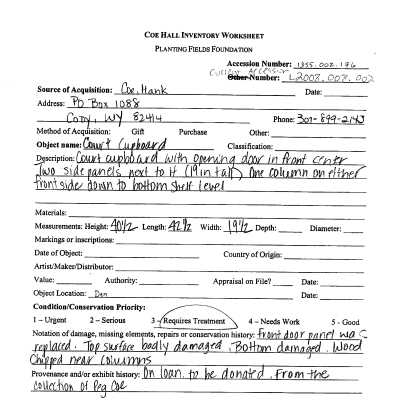 COE HALL INVENTORY WORKSHEET
PLANTING FIELDS FOUNDATION
Accession Number: 1355.002.196
Current Accession
Other Number: L2002.002.002
Source of Acquisition: Coe, Hank Date:
Address: PO Box 1088
Cody, WY 82414 Phone: 307-899-2143
Method of Acquisition: Gift Purchase Other:
Object name: Court Cupboard Classification:
Description: Court cupboard with opening door in front center
Two side panels next to it (19 in tall) One column on either
front side down to bottom shelf level
Materials:
Measurements: Height: 40 1/2 Length: 42 1/2 Width: 19 1/2 Depth: Diameter:
Markings or inscriptions:
Date of Object: Country of Origin:
Artist/Maker/Distributor:
Value: Authority: Appraisal on File? Date:
Object Location: Den Date:
Condition/Conservation Priority:
1 – Urgent 2 – Serious 3 – Requires Treatment 4 – Needs Work 5 - Good
Notation of damage, missing elements, repairs or conservation history: front door panel was
replaced. Top surface badly damaged. Bottom damaged. Wood
Chipped near columns
Provenance and/or exhibit history: On loan. to be donated. From the
collection of Peg Coe